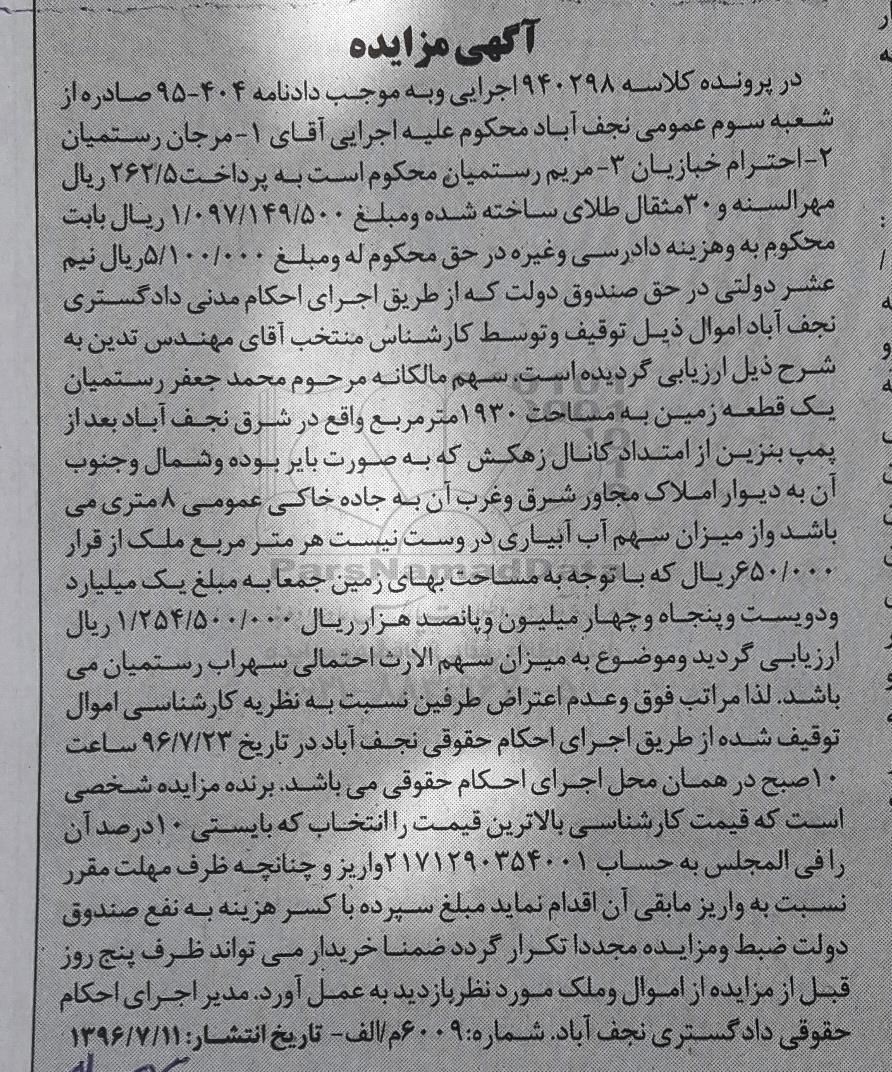 آگهی مزایده
در پرونده کلاسه ۹۴۰۲۹۸ اجرایی وبه موجب دادنامه ۴۰۴-۹۵ صادره از
شعبه سوم عمومی نجف آباد محکوم علیه اجرایی آقای ۱-مرجان رستمیان
۲-احترام خبازیان ۳-مریم رستمیان محکوم است به پرداخت ۲۶۲/۵ ریال
مهرالسنه و ۳۰مثقال طلای ساخته شده ومبلغ ۱/۰۹۷/۱۴۹/۵۰۰ ریال بابت
محکوم به وهزینه دادرسی وغیره در حق محکوم له ومبلغ ۵/۱۰۰/۰۰۰ریال نیم
عشر دولتی در حق صندوق دولت که از طریق اجرای احکام مدنی دادگستری
نجف آباد اموال ذیل توقیف وتوسط کارشناس منتخب آقای مهندس تدین به
شرح ذیل ارزیابی گردیده است. سهم مالکانه مرحوم محمد جعفر رستمیان
یک قطعه زمین به مساحت ۱۹۳۰مترمربع واقع در شرق نجف آباد بعد از
پمپ بنزین از امتداد کانال زهکش که به صورت بایر بوده وشمال وجنوب
آن به دیوار املاک مجاور شرق وغرب آن به جاده خاکی عمومی ۸ متری می
باشد واز میزان سهم آب آبیاری در وست نیست هر متر مربع ملک از قرار
۶۵۰/۰۰۰ریال که با توجه به مساحت بهای زمین جمعا به مبلغ یک میلیارد
ودویست وپنجاه وچهار میلیون وپانصد هزار ریال ۱/۲۵۴/۵۰۰/۰۰۰ ریال
ارزیابی گردید وموضوع به میزان سهم الارث احتمالی سهراب رستمیان می
باشد. لذا مراتب فوق وعدم اعتراض طرفین نسبت به نظریه کارشناسی اموال
توقیف شده از طریق اجرای احکام حقوقی نجف آباد در تاریخ ۹۶/۷/۲۳ ساعت
۱۰صبح در همان محل اجرای احکام حقوقی می باشد. برنده مزایده شخصی
است که قیمت کارشناسی بالاترین قیمت را انتخاب که بایستی ۱۰درصد آن
را فی المجلس به حساب ۲۱۷۱۲۹۰۳۵۴۰۰۱واریز و چنانچه ظرف مهلت مقرر
نسبت به واریز مابقی آن اقدام نماید مبلغ سپرده با کسر هزینه به نفع صندوق
دولت ضبط ومزایده مجددا تکرار گردد ضمنا خریدار می تواند ظرف پنج روز
قبل از مزایده از اموال وملک مورد نظربازدید به عمل آورد. مدیر اجرای احکام
حقوقی دادگستری نجف آباد. شماره:۶۰۰۹م/الف- تاریخ انتشار: ۱۳۹۶/۷/۱۱
ParsNamadData